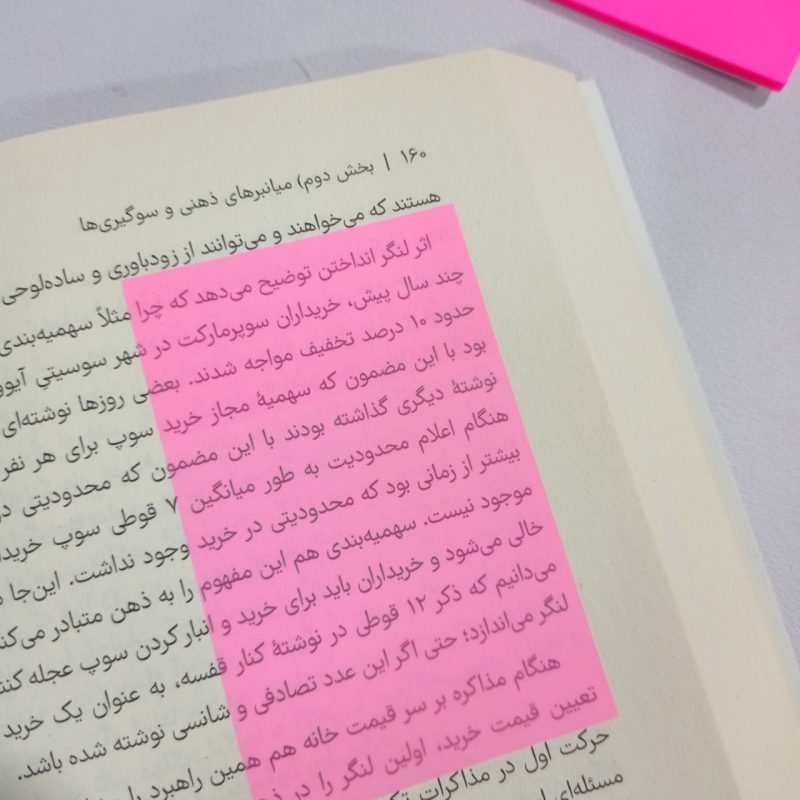 ۱۶۰ | بخش دوم) میانبرهای ذهنی و سوگیری‌ها
هستند که می‌خواهند و می‌توانند از زودباوری و ساده‌لوحی
اثر لنگر انداختن توضیح می‌دهد که چرا مثلاً سهمیه‌بندی
چند سال پیش، خریداران سوپرمارکت در شهر سوسیتی آیوو
حدود ۱۰ درصد تخفیف مواجه شدند. بعضی روزها نوشته‌ای
بود با این مضمون که سهمیهٔ مجاز خرید سوپ برای هر نفر
نوشتهٔ دیگری گذاشته بودند با این مضمون که محدودیتی در
هنگام اعلام محدودیت به طور میانگین ۷ قوطی سوپ
بیشتر از زمانی بود که محدودیتی در خرید وجود نداشت. این‌جا
موجود نیست. سهمیه‌بندی هم این مفهوم را به ذهن متبادر
خالی می‌شود و خریداران باید برای خرید و انبار کردن سوپ عجله
می‌دانیم که ذکر ۱۲ قوطی در نوشتهٔ کنار قفسه، به عنوان یک خرید
لنگر می‌اندازد؛ حتی اگر این عدد تصادفی و شانسی نوشته شده باشد.
هنگام مذاکره بر سر قیمت خانه هم همین راهبرد را
تعیین قیمت خرید، اولین لنگر را در
حرکت اول در مذاکرات
مسئله‌ای